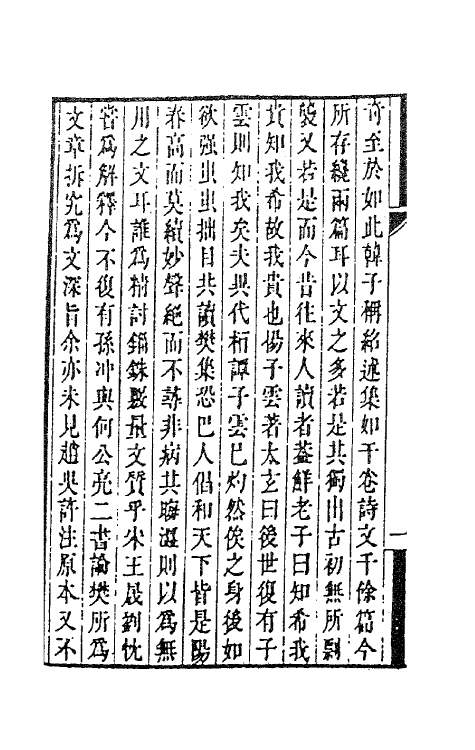 奇至於如此韓子稱紹述集如干卷詩文千餘篇今
所存纔兩篇耳以文之多若是其獨出古初無所剽
襲又若是而今昔往來人讀者蓋鮮老子曰知希我
貴知我希故我貴也揚子雲著太玄曰後世復有子
雲則知我矣夫異代桓譚子雲已灼然俟之身後如
欲强虫虫拙目共讀樊集恐巴人倡和天下皆是陽
春高而莫續妙聲絕而不尋非病其晦澀則以爲無
用之文耳誰爲精討錙銖覈量文質乎宋王晟劉忱
嘗爲解釋今不復有孫冲與何公亮二書論樊所爲
文章拆究爲文深旨余亦未見趙吳許注原本又不
一